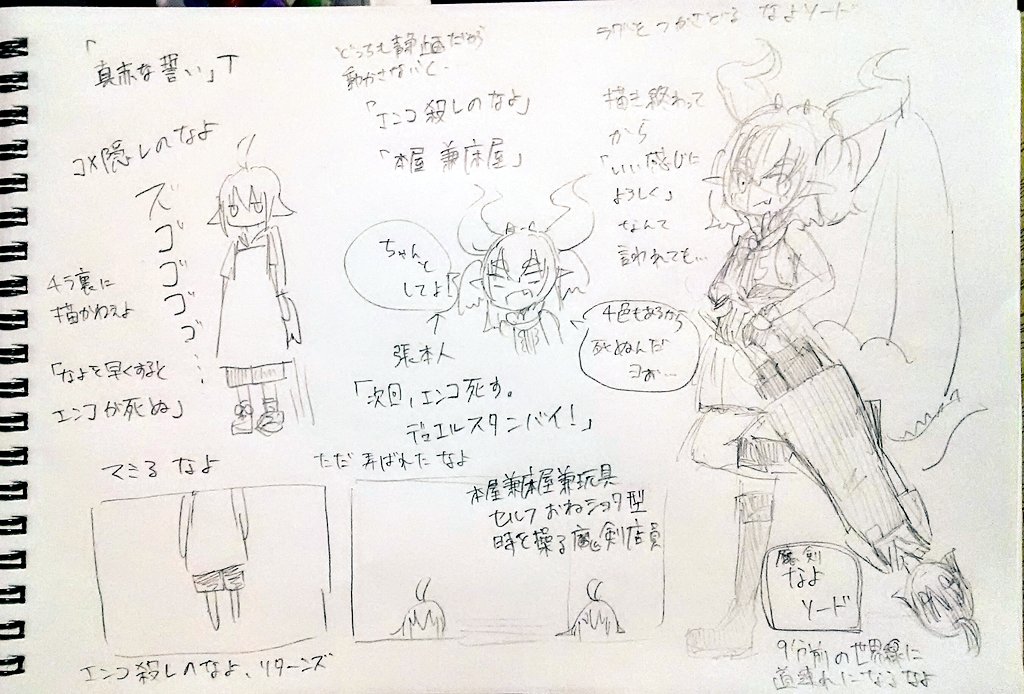 「
真赤な誓い」T
コメ隠しのなよ
ズ
ゴ
ゴ
ゴ
ゴ
：
チラ裏に
描かねぇよ
「なよを早くすると
エンコが死ぬ」
どっちも静画だから
動かさないと…
「エンコ殺しのなよ」
「本屋兼床屋」
ちゃんと
してよ！
↑
張本人
「次回，エンコ死す。
デュエルスタンバイ！」
ラグをつかさどるなよソード
描き終わって
から
「いい感じに
よろしく」
なんて
言われても…
4色もあるから
死ぬんだ
ヨぉ…
マミるなよ
ただ弄ばれたなよ
本屋兼床屋兼玩具
セルフおねショタ型
時を操る魔剣店員
エンコ殺しのなよ、リターンズ
魔剣
なよ
ソード
9分前の世界線に
道連れになるなよ